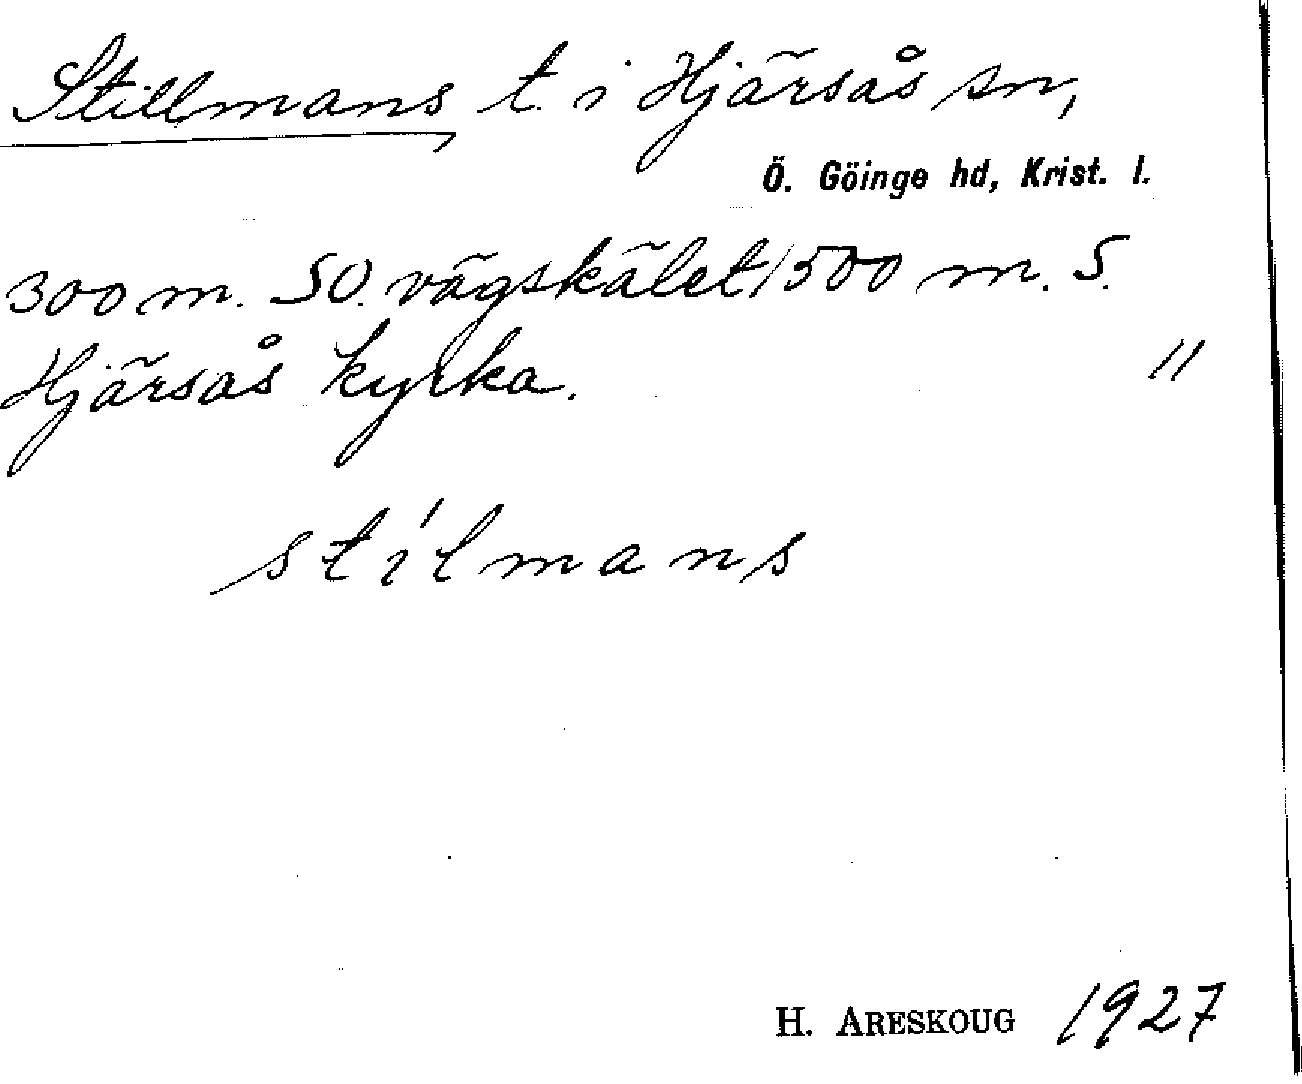 Stillmans, t. i Hjärsås sn,
Ö. Göinge hd, Krist. l.
300 m. SO. vägskälet, 1500 m. S.
Hjärsås kyrka. "
stílmans
H. ARESKOUG 1927